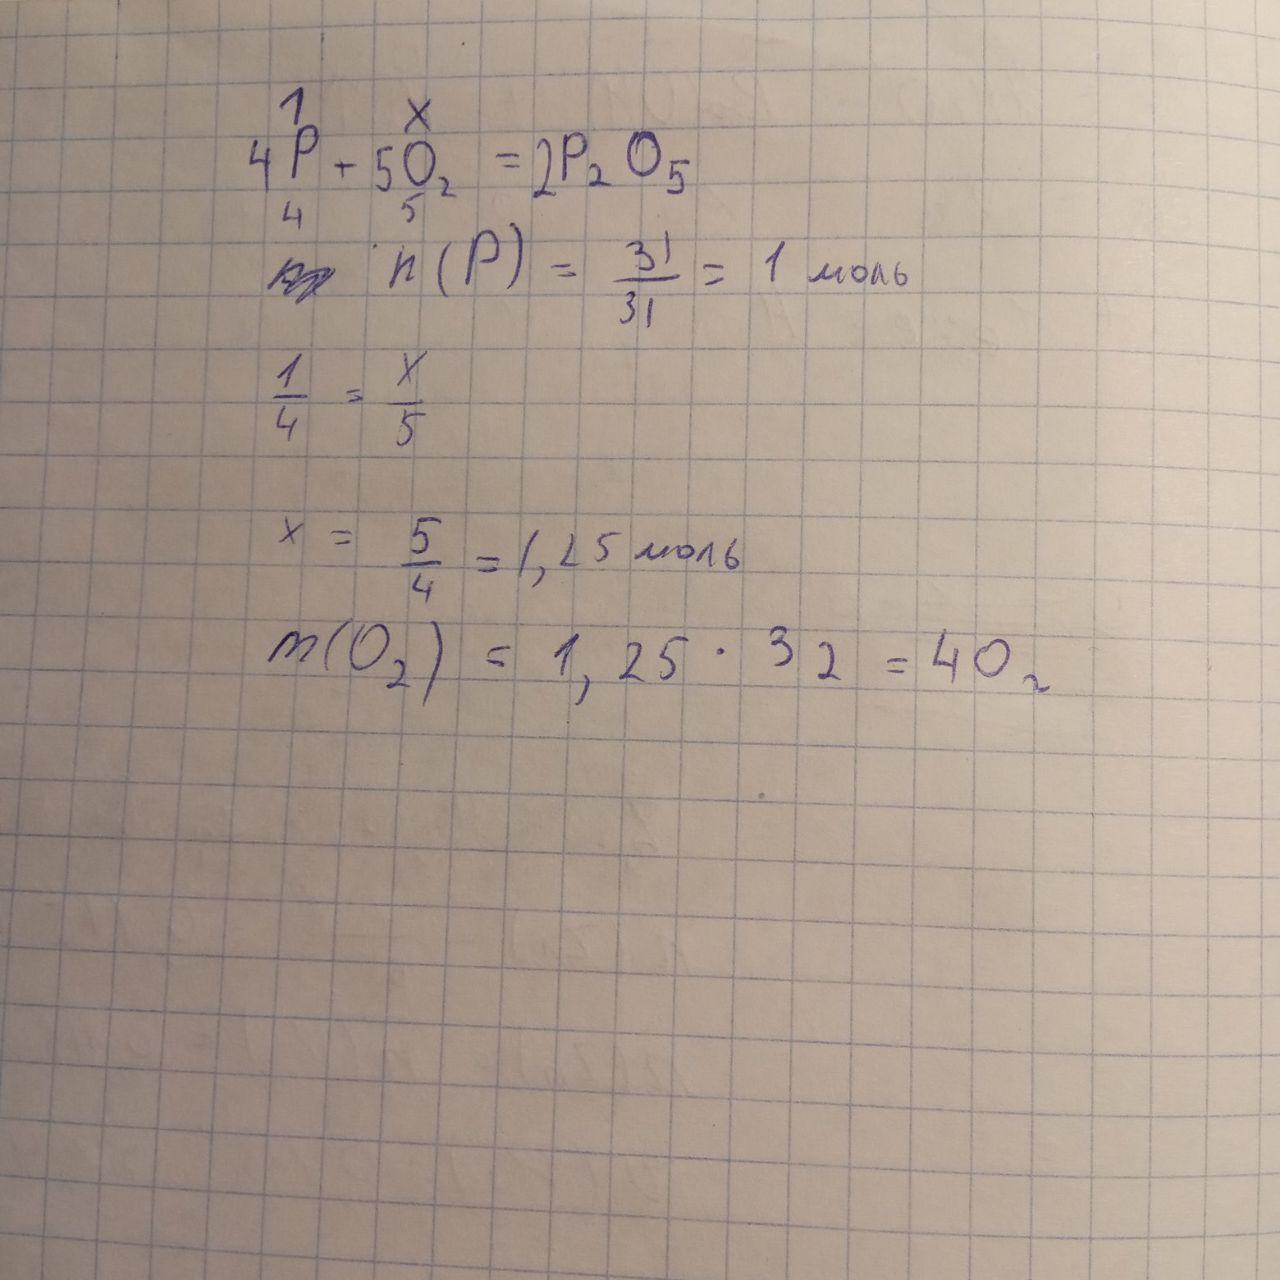 1 x
4P + 5O₂ = 2P₂O₅
4 5
n(P) = 31/31 = 1 моль
1/4 = x/5
x = 5/4 = 1,25 моль
m(O₂) = 1,25 · 32 = 40г